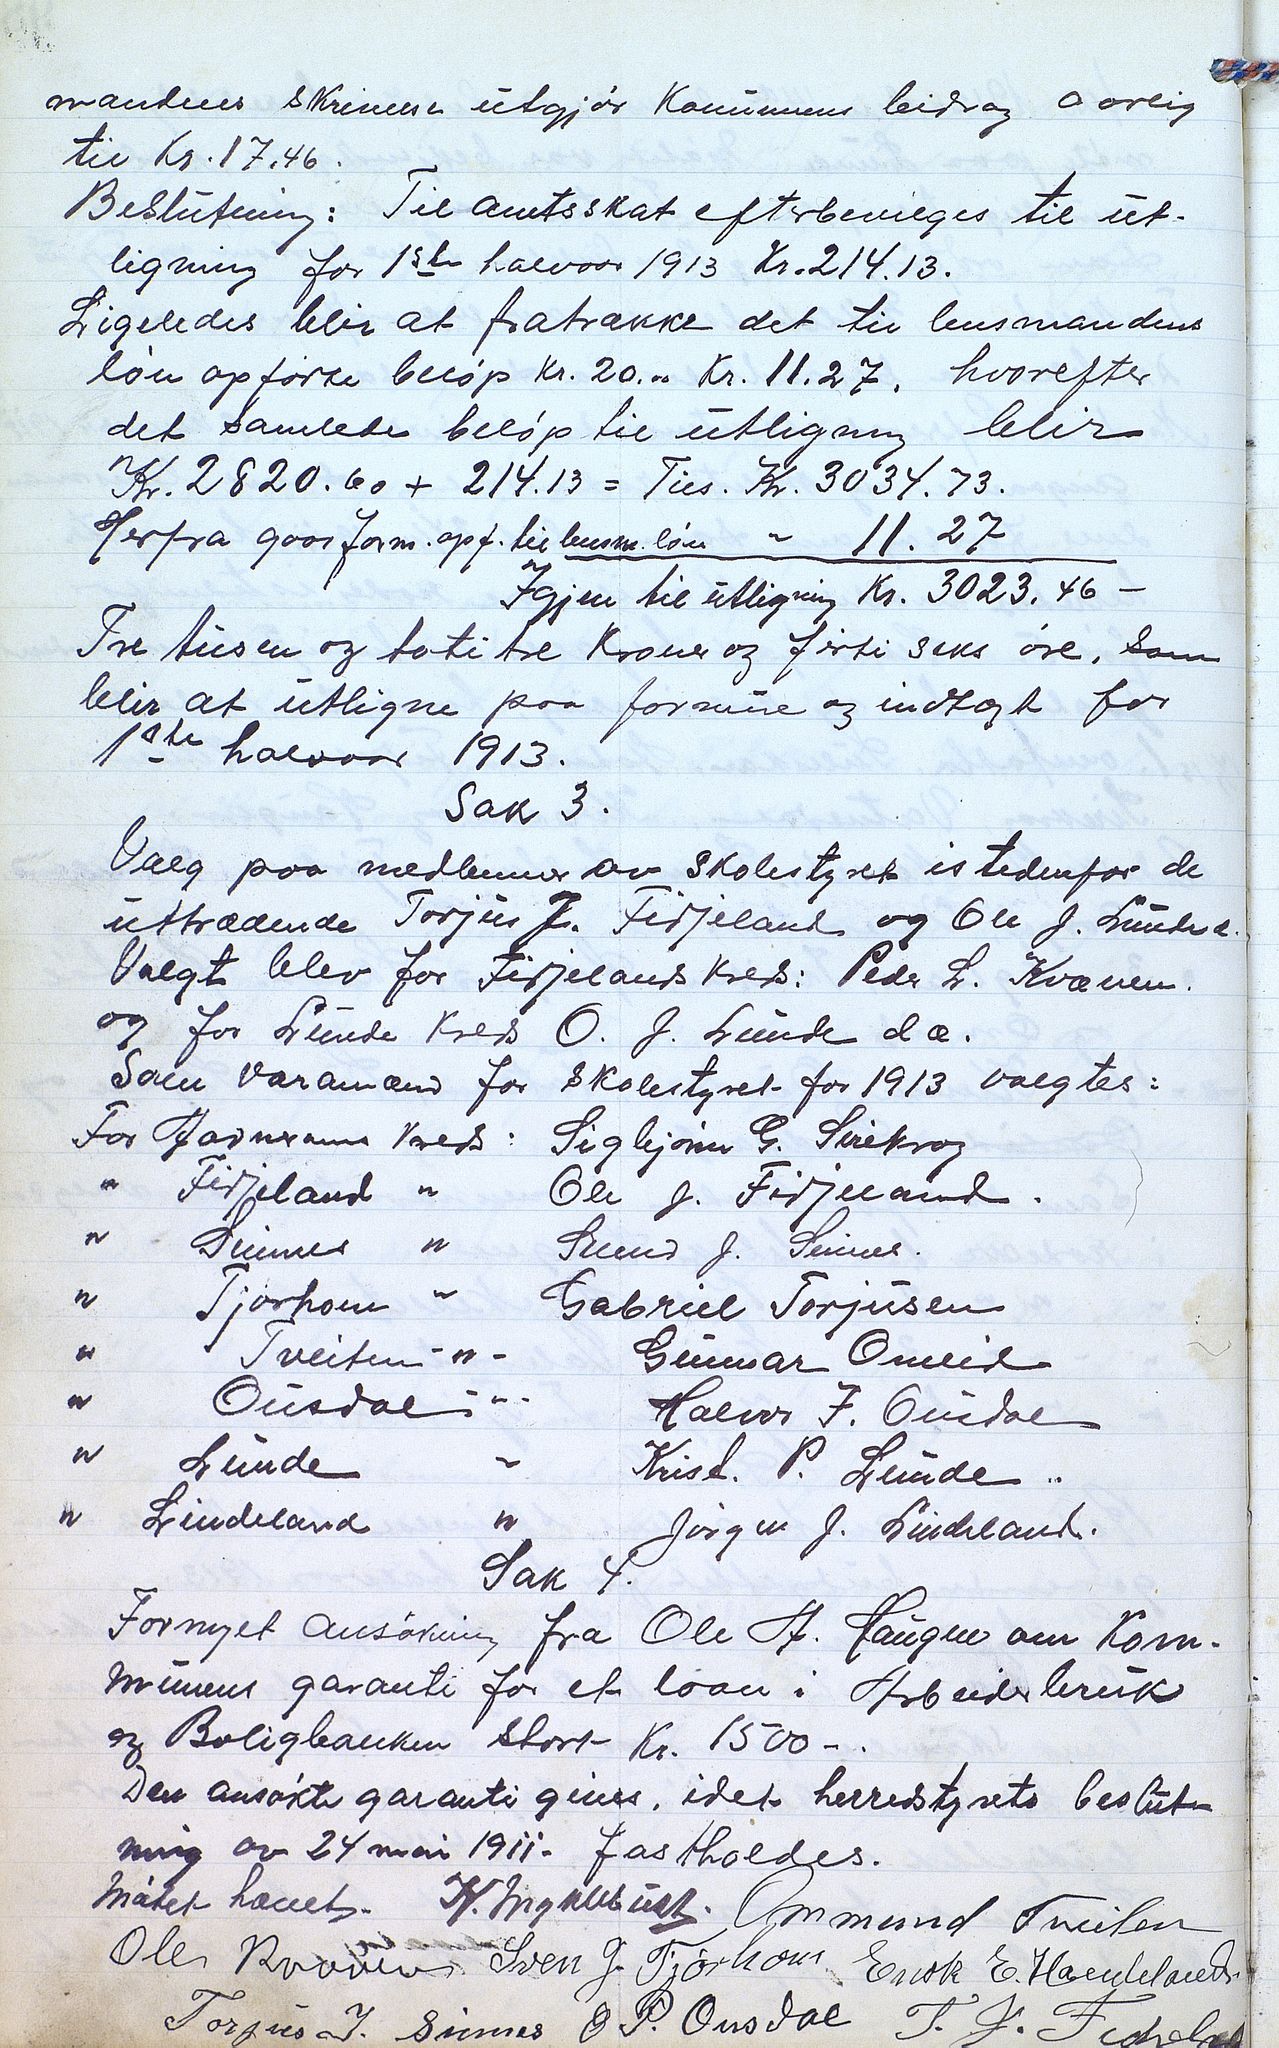 mandens skrivese utgjør Kommunens bidrag aarlig
til Kr. 17.46.
Beslutning: Til amtsskat efterbevilges til ut-
ligning for 1ste halvaar 1913 Kr. 214.13.
Ligeledes blir at fratrække det til lensmandens
løn opførte beløp Kr. 20.00 Kr. 11.27, hvorefter
det samlede beløp til utligning blir
Kr. 2820.60 + 214.13 = Tils. Kr. 3034.73.
Herfra gaar form. opf. til lensm. løn " 11.27
Igjen til utligning Kr. 3023.46 –
Tre tusen og toti tre Kroner og førti seks øre, som
blir at utligne paa formue og indtægt for
1ste halvaar 1913.
Sak 3.
Valg paa medlemmer av skolestyret istedenfor de
uttrædende Torjus J. Fidjeland og Ole J. Lunde d.
Valgt blev for Fidjelands Kreds: Peder L. Kvænen.
og for Lunde Kreds O. J. Lunde d.æ.
Som varamænd for skolestyret for 1913 valgtes:
For Kreds: Sigbjørn G. Sirekrog
" Fidjeland " Ole J. Fidjeland.
" Sinnes " J. Sinnes.
" Tjørhom " Gabriel Torjusen
" Tveiten - " - Gunnar Omlid
" Ousdal - " - Halvor J. Ousdal
" Lunde " Krist. P. Lunde "
" Lindeland " Jørgen J. Lindeland.
Sak 4.
Fornyet ansøkning fra Ole H. Haugen om Kom-
munens garanti for et laan i Arbeiderbruk
og Boligbanken stort Kr. 1500 -.
Den ansøkte garanti gives, idet herredstyrets beslut-
ning av 24 mai 1911 - fastholdes.
Møtet hævet. K. Myklebust. Ommund Tveiten
Ole Kvæven Sven J. Tjørhom Enok E. Haughland
Torjus J. Sinnes O P. Ousdal T. J. Fidjeland